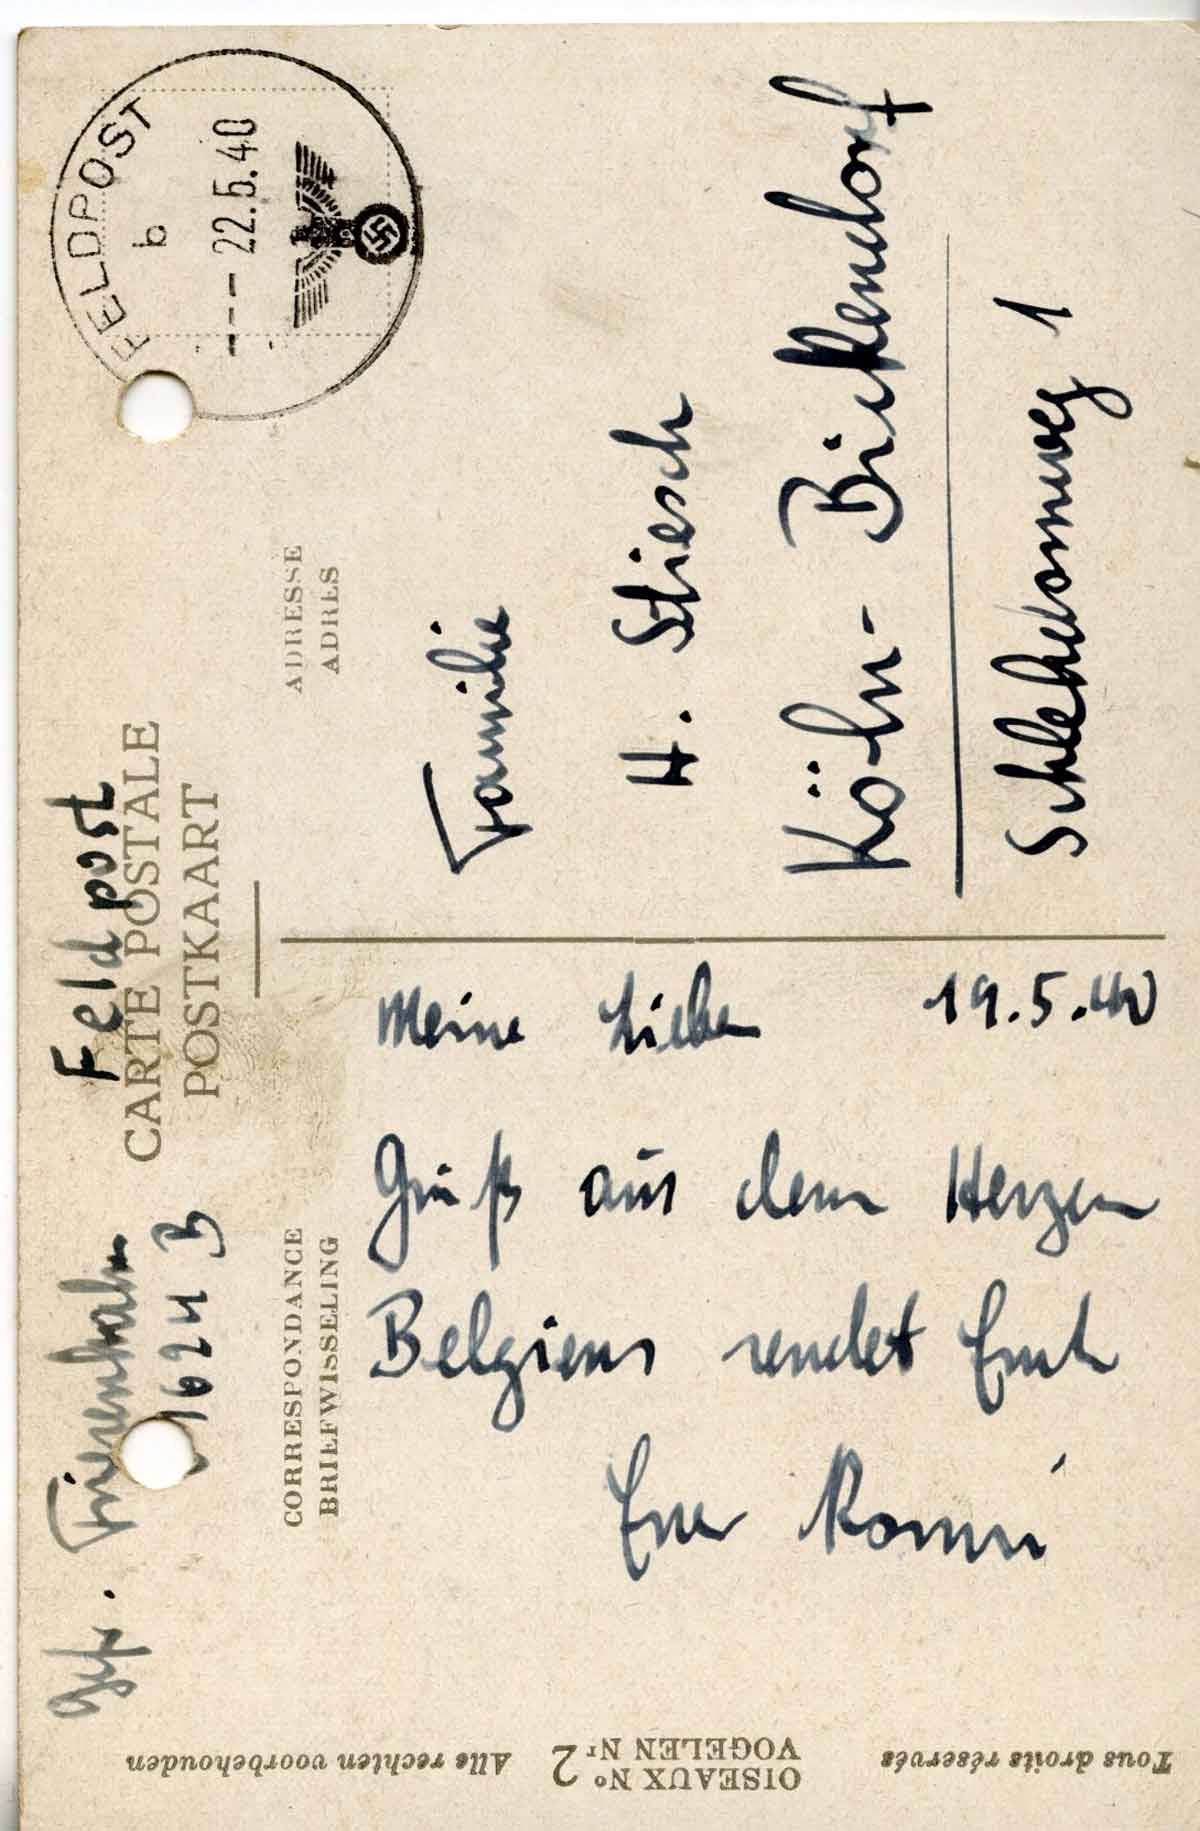 Gefr. Friesenhahn
1624 B
Feldpost
CARTE POSTALE
POSTKAART
FELDPOST
b
--- 22.5.40
CORRESPONDANCE
BRIEFWISSELING
ADRESSE
ADRES
Meine Lieben
19.5.40
Gruß aus dem Herzen
Belgiens sendet Euch
Euer Romi
Familie
H. Stiesch
Köln-Bickendorf
Schlehdornweg 1
Tous droits réservés
OISEAUX Nº 2
VOGELEN Nr 2
Alle rechten voorbehouden